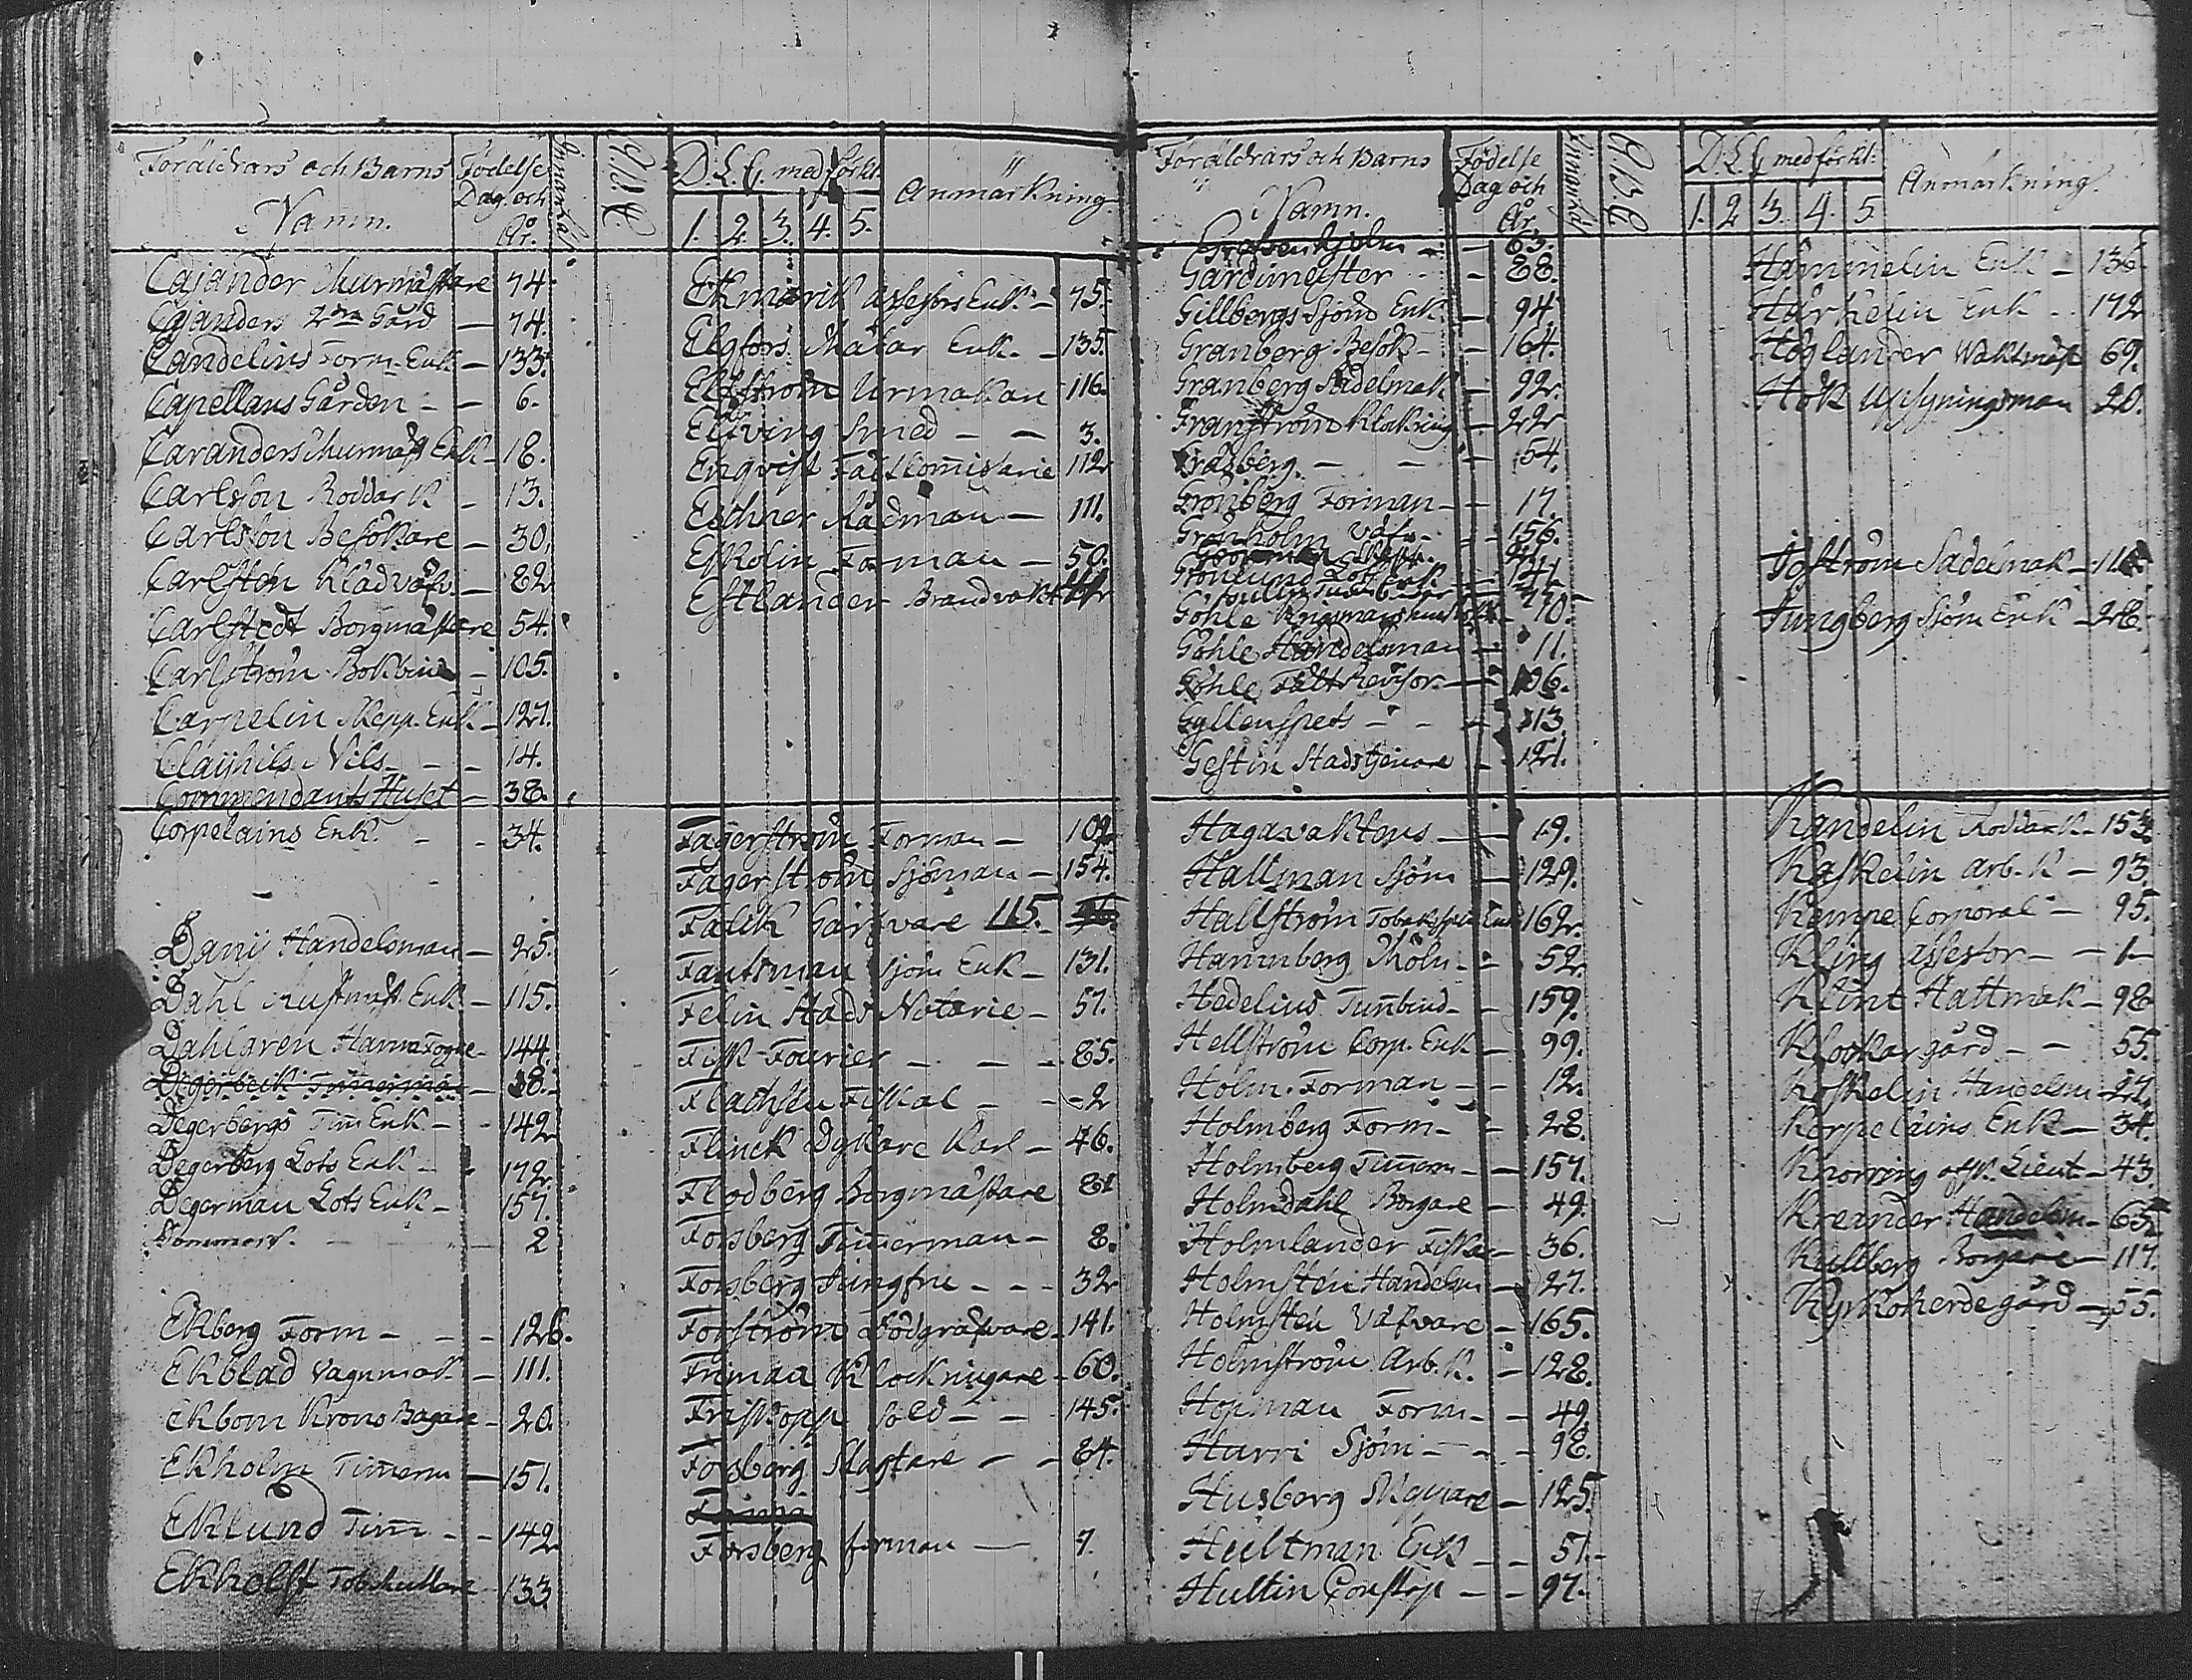 Föräldrars och Barns Namn.
Födelse Dag och År.
A.B.C.
D.L.C. med förkl:
1. 2. 3. 4. 5.
Anmärkning
Cajander Murmästare 74.
Cajanders 2dra Gård — 74.
Candelins Form. Enk. — 133.
Capellans Gården — — 6.
Caranders Murmäst Enk — 18.
Carlsson Roddar K — 13.
Carlsson Besökare — 30.
Carlstén Klädväfv. — 82
Carlstedt Borgmästare 54.
Carlström Bokbind — 105.
Carpelin Skepp. Enk — 127.
Clayhils Nils — — 14.
Commendants Huset — 38.
Corpelains Enk. — — 34.
Danij Handelsman — 25.
Dahl Rustmäst. Enk — 115.
Dahlgren Hamnfogde — 144.
Degerbeck Timmerman — 18.
Degerbergs Tim Enk — — 142
Degerberg Lots Enk — — 172
Degerman Lots Enk — 157.
2
Ekberg Form — — 126.
Ekblad Vagnmak — 111.
Ekbom Krono Bagare — 20.
Ekholm Timerm — 151.
Eklund Tim — — 142
Ekholst 133
Ekmark Enk. — 75.
Elgfors Målar Enk. — 135.
Elfström Urmakan 116.
Elfving Smed — — 3.
Enqvist Fältcommissarie 112
Eschner Rådman — 111.
Eskolin Forman — 50.
Estlander Brandvakt
Fagerström Forman — 109
Fagerström Sjöman — 154.
Falck Garfvare 115.
Fantsman Sjöm Enk — 131.
Felin Stads Notarie — 57.
Fisk Fourier — — — 85.
Flachsen Fiskal — — 2
Flinck Dykare Karl — 46.
Flodberg Borgmästare 81
Forsberg Timmerman — 8.
Forsberg Jungfru — — 32
Forström Dödgräfvare — 141.
Friman Klockringare — 60.
Friskopp Sold — — 145.
Forsberg Slagtare — — 84.
Forsberg forman — 7.
Föräldrars och Barns Namn.
Födelse Dag och År
A.B.C.
D.L.C. med förkl:
1. 2. 3. 4. 5.
Anmärkning.
63.
Gardimeister — 88.
Gillbergs Sjöm Enk. — 94
Granberg Besök — — 164.
Granberg Sadelmak — 92.
Granström Klockring — 22
54.
Grönberg Forman — 17.
Grönholm Väfv — — 156.
Grönlund Lots Enk — 141
Göhle 70.
Göhle Handelsman — 11.
Göhle Fält Revisor — 106.
Gyllenspets — — — 113
Gestin Stadstjenare — 121.
Hagavaktens — — 19.
Hallman Sjöm — 129.
Hallström Enk 162.
Hamnberg Möln — — 52.
Hedelius Tunbind — 159.
Hellström Corp. Enk — 99.
Holm Forman — — 12.
Holmberg Form — — 28.
Holmberg Timerm — — 157.
Holmdahl Borgare — 49.
Holmlander Fiskar — 36.
Holmsten Handelsm — 27.
Holmstén Väfvare — 165.
Holmström Arb. K. — 128.
Hopman Form — — 49.
Hurri Sjöm — — — 98.
Husberg — 125.
Hultman Enk — — 51.
Hultin Constap — — 97.
Hammelin Enk — 136
Härkelin Enk — 172
Höglander Waktmäst 69.
Hök Upsyningsman 20.
Jofström Sadelmak
Jungberg Sjöm Enk — 28.
Kandelin Roddar K — 153
Kaskelin Arb. K — 93.
Kempe Corporal — 95.
Kling Assessor — — 1
Klint Hattmak — 98
Klockargård — — 55.
Koskelin Handelsm — 27.
Korpelains Enk — 34.
Knorring afsk. Lieut — 43
Kreander Handelsm — 65
Kullberg Borgare — 117.
Kyrkoherdegård — 55.